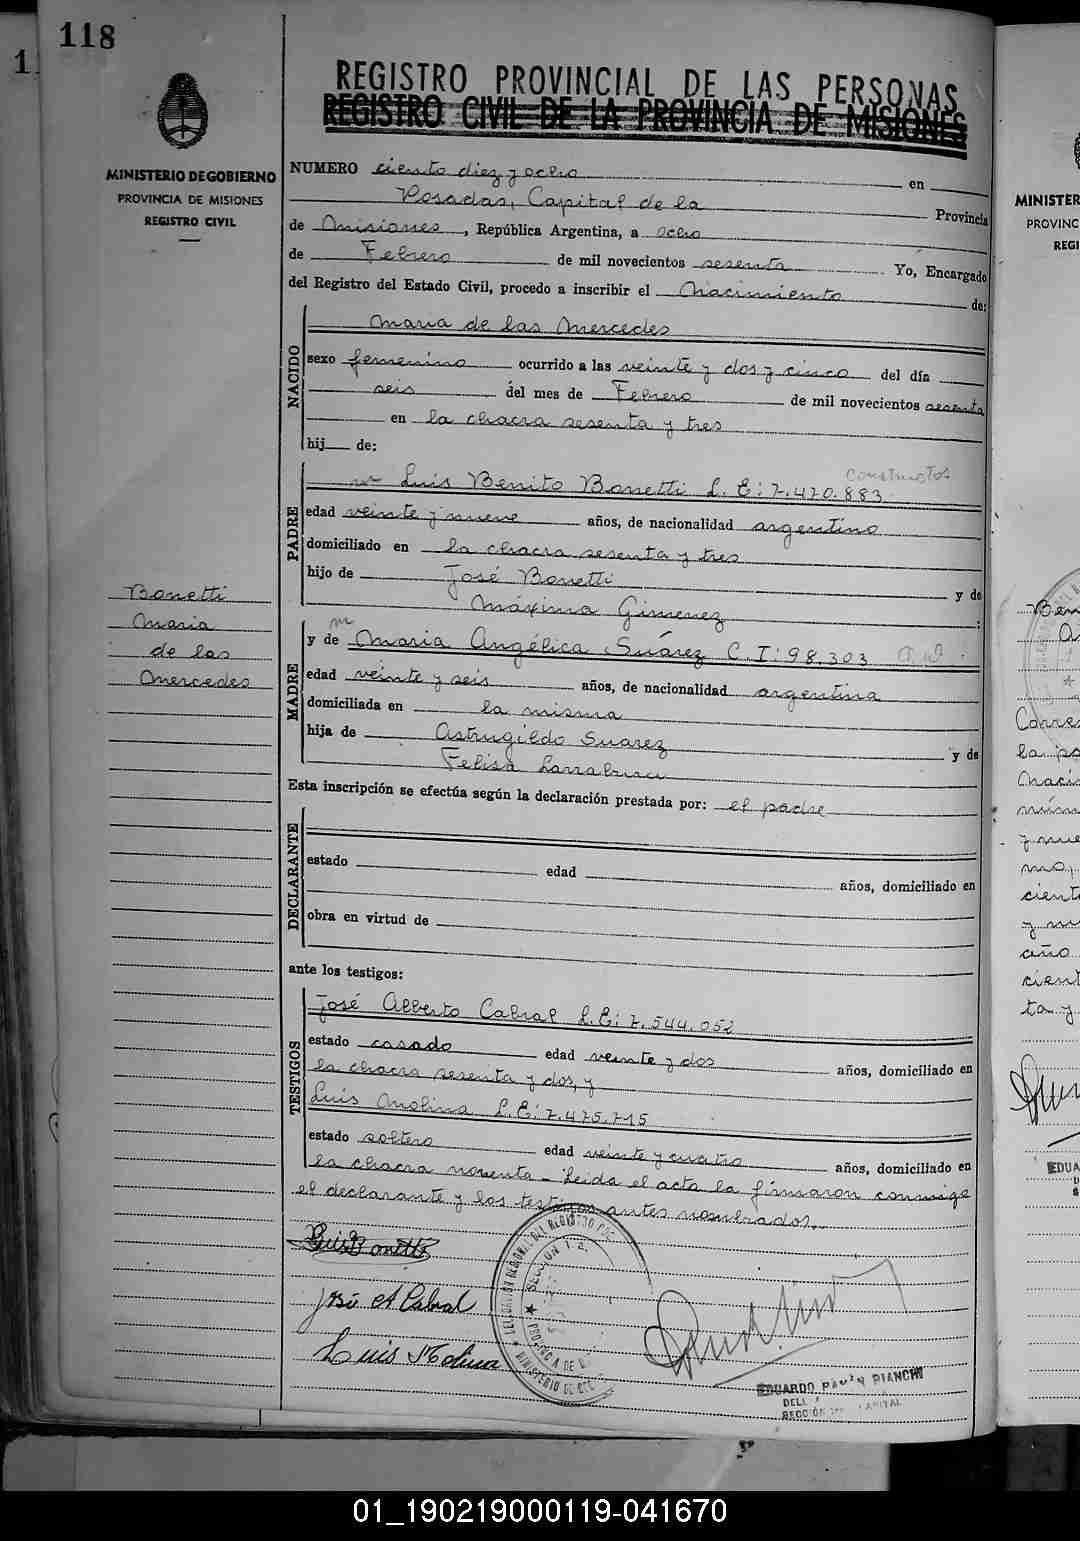 118
1
MINISTERIO DE GOBIERNO
PROVINCIA DE MISIONES
REGISTRO CIVIL
REGISTRO PROVINCIAL DE LAS PERSONAS
REGISTRO CIVIL DE LA PROVINCIA DE MISIONES
NUMERO ciento diez y ocho en
Posadas, Capital de la Provincia
de Misiones, República Argentina, a ocho
de Febrero de mil novecientos sesenta Yo, Encargado
del Registro del Estado Civil, procedo a inscribir el Nacimiento de:
NACIDO
Maria de las Mercedes
sexo femenino ocurrido a las veinte y dos y cinco del día
seis del mes de Febrero de mil novecientos sesenta
en la chacra sesenta y tres
hij de:
PADRE
constructor
Luis Benito Bonetti L. E: 7.470.883
edad veinte y nueve años, de nacionalidad argentino
domiciliado en la chacra sesenta y tres
hijo de José Bonetti y de
Máxima Gimenez
MADRE
y de Maria Angélica Suárez C. I: 98.303
edad veinte y seis años, de nacionalidad argentina
domiciliada en la misma
hija de Astrugildo Suarez y de
Felisa Larraburu
Esta inscripción se efectúa según la declaración prestada por: el padre
DECLARANTE
estado edad años, domiciliado en
obra en virtud de
ante los testigos:
TESTIGOS
José Alberto Cabral L.E: 7.544.052
estado casado edad veinte y dos años, domiciliado en
la chacra sesenta y dos, y
Luis Molina L.E: 7.475.715
estado soltero edad veinte y cuatro años, domiciliado en
la chacra noventa - Leida el acta la firmaron conmigo
el declarante y los testigos antes nombrados.
Bonetti
Maria
de las
Mercedes
Luis Bonetti
José A Cabral
Luis Molina
DELEGACION REGIONAL DEL REGISTRO
SECCION 1a.
PROVINCIA DE
MINISTERIO DE
EDUARDO RAMÓN BIANCHI
SECCIÓN CAPITAL
MINISTER
PROVINC
REGI
Correc
la
Naci
y nue
mo,
cient
y
año
cient
ta y
EDUA
01_190219000119-041670